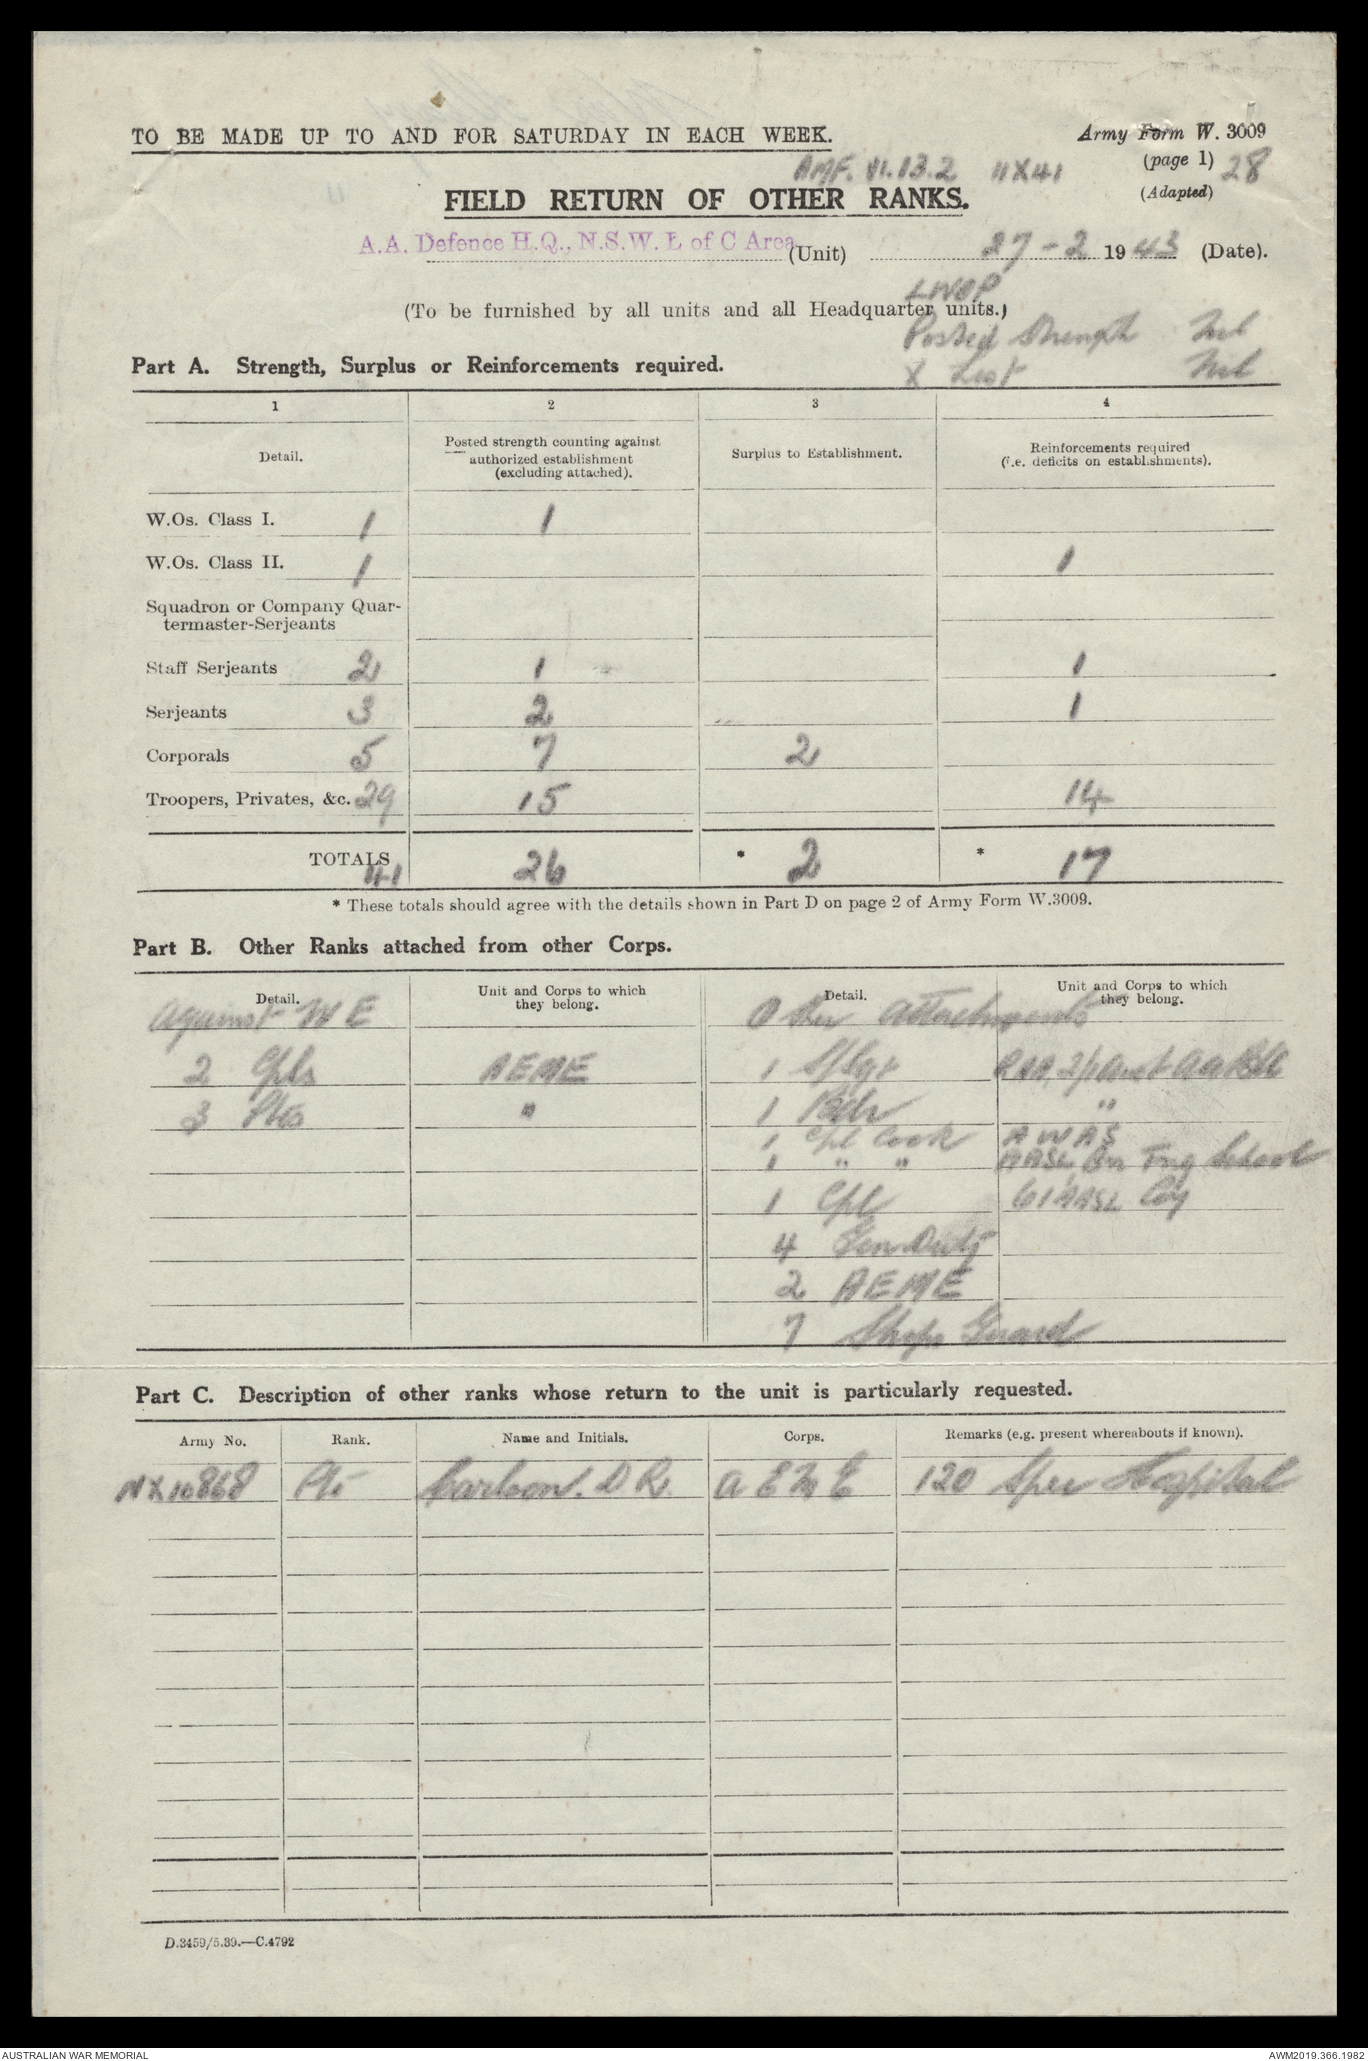 TO BE MADE UP TO AND FOR SATURDAY IN EACH WEEK.
Army Form W. 3009
(page 1) 28
(Adapted)
AMF. VI.13.2 11X41
FIELD RETURN OF OTHER RANKS.
A.A. Defence H.Q., N.S.W. L of C Area (Unit) 27-2 1943 (Date).
LHQP
(To be furnished by all units and all Headquarter units.)
Posted Strength Nil
X List Nil
Part A. Strength, Surplus or Reinforcements required.
1 2 3 4
Detail. Posted strength counting against authorized establishment (excluding attached). Surplus to Establishment. Reinforcements required (i.e. deficits on establishments).
W.Os. Class I. 1 1
W.Os. Class II. 1 1
Squadron or Company Quar-
termaster-Serjeants
Staff Serjeants 2 1 1
Serjeants 3 2 1
Corporals 5 7 2
Troopers, Privates, &c. 29 15 14
TOTALS 41 26 * 2 * 17
* These totals should agree with the details shown in Part D on page 2 of Army Form W.3009.
Part B. Other Ranks attached from other Corps.
Detail. Unit and Corps to which they belong. Detail. Unit and Corps to which they belong.
Against WE Other Attachments
2 Cpls AEME 1 S/Sgt RAA, 2/1 Aust AA
3 Ptes " 1 Bdr "
1 Cpl Cook AWAS
1 " " AASL Bn Tng School
1 Cpl 61 AASL Coy
4 Gen Duty
2 AEME
7 Ships Guard
Part C. Description of other ranks whose return to the unit is particularly requested.
Army No. Rank. Name and Initials. Corps. Remarks (e.g. present whereabouts if known).
NX10868 Pte Carlson. D R. AEME 120 Spec Hospital
D.3459/5.39.—C.4792
AUSTRALIAN WAR MEMORIAL
AWM2019.366.1982